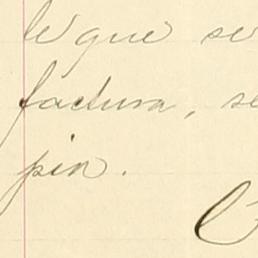 le que se
factura, se
pia.